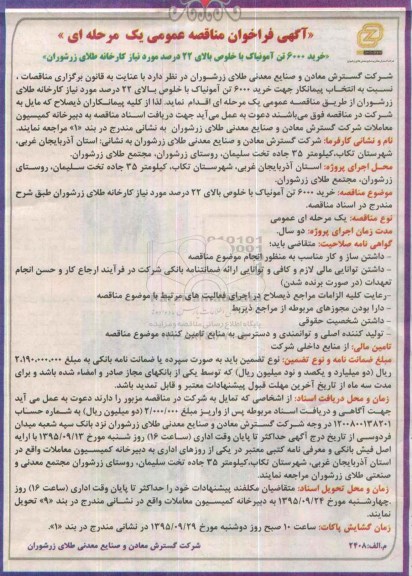 «آگهی فراخوان مناقصه عمومی یک مرحله ای »
«خرید ۶۰۰۰ تن آمونیاک با خلوص بالای ۲۲ درصد مورد نیاز کارخانه طلای زرشوران»
شرکت گسترش معادن و صنایع معدنی طلای زرشوران در نظر دارد با عنایت به قانون برگزاری مناقصات ،
نسبت به انتخاب پیمانکار جهت خرید ۶۰۰۰ تن آمونیاک با خلوص بالای ۲۲ درصد مورد نیاز کارخانه طلای
زرشوران از طریق مناقصه عمومی یک مرحله ای اقدام نماید. لذا از کلیه پیمانکاران ذیصلاح که مایل به
شرکت در مناقصه فوق می‌باشند دعوت به عمل می‌آید جهت دریافت اسناد مناقصه به دبیرخانه کمیسیون
معاملات شرکت گسترش معادن و صنایع معدنی طلای زرشوران به نشانی مندرج در بند «۱» مراجعه نمایند.
نام و نشانی کارفرما: شرکت گسترش معادن و صنایع معدنی طلای زرشوران به نشانی: استان آذربایجان غربی،
شهرستان تکاب،کیلومتر ۳۵ جاده تخت سلیمان، روستای زرشوران، مجتمع طلای زرشوران.
محل اجرای پروژه: استان آذربایجان غربی، شهرستان تکاب، کیلومتر ۳۵ جاده تخت سلیمان، روستای
زرشوران، مجتمع طلای زرشوران.
موضوع مناقصه: خرید ۶۰۰۰ تن آمونیاک با خلوص بالای ۲۲ درصد مورد نیاز کارخانه طلای زرشوران طبق شرح
مندرج در اسناد مناقصه.
نوع مناقصه: یک مرحله ای عمومی
مدت زمان اجرای پروژه: دو سال.
گواهی نامه صلاحیت: متقاضی باید:
- داشتن ساز و کار مناسب به منظور انجام موضوع مناقصه
- داشتن توانایی مالی لازم و کافی و توانایی ارائه ضمانتنامه بانکی شرکت در فرآیند ارجاع کار و حسن انجام
تعهدات (در صورت برنده شدن)
-رعایت کلیه الزامات مراجع ذیصلاح در اجرای فعالیت های مرتبط با موضوع مناقصه
- دارا بودن مجوزهای مربوطه از مراجع ذیربط
- داشتن شخصیت حقوقی
- تولید کننده اصلی و توانمندی و دسترسی به منابع تامین کننده موضوع مناقصه
تامین مالی: از منابع داخلی شرکت
مبلغ ضمانت نامه و نوع تضمین: نوع تضمین باید به صورت سپرده یا ضمانت نامه بانکی به مبلغ ۲،۱۹۰،۰۰۰،۰۰۰
ریال (دو میلیارد و یکصد و نود میلیون ریال) که توسط یکی از بانکهای مجاز صادر و امضاء شده باشد و برای
مدت سه ماه از تاریخ آخرین مهلت قبول پیشنهادات معتبر و قابل تمدید باشد.
زمان و محل دریافت اسناد: از اشخاصی که تمایل به شرکت در مناقصه مزبور را دارند دعوت به عمل می آید
جهت آگاهی و دریافت اسناد مربوطه پس از واریز مبلغ ۲/۰۰۰/۰۰۰ (دو میلیون ریال) به شماره حساب
۱۲۰۰۸۰۰۱۳۸۲۰۱ در وجه شرکت گسترش معادن و صنایع معدنی طلای زرشوران نزد بانک سپه شعبه میدان
فردوسی از تاریخ درج آگهی حداکثر تا پایان وقت اداری (ساعت ۱۶) روز شنبه مورخ ۱۳۹۵/۰۹/۱۳ با ارایه
اصل فیش بانکی و معرفی نامه کتبی معتبر در یکی از روزهای اداری به دبیرخانه کمیسیون معاملات واقع در
استان آذربایجان غربی، شهرستان تکاب،کیلومتر ۳۵ جاده تخت سلیمان، روستای زرشوران مجتمع معدنی و
صنعتی طلای زرشوران مراجعه نمایند.
زمان و محل تحویل اسناد: متقاضیان مکلفند پیشنهادات خود را حداکثر تا پایان وقت اداری (ساعت ۱۶) روز
چهارشنبه مورخ ۱۳۹۵/۰۹/۲۴ به دبیرخانه کمیسیون معاملات واقع در نشانی مندرج در بند «۹» تحویل
نمایند.
زمان گشایش پاکات: ساعت ۱۰ صبح روز دوشنبه مورخ ۱۳۹۵/۰۹/۲۹ در نشانی مندرج در بند «۱».
شرکت گسترش معادن و صنایع معدنی طلای زرشوران
م.الف:۲۴۰۸